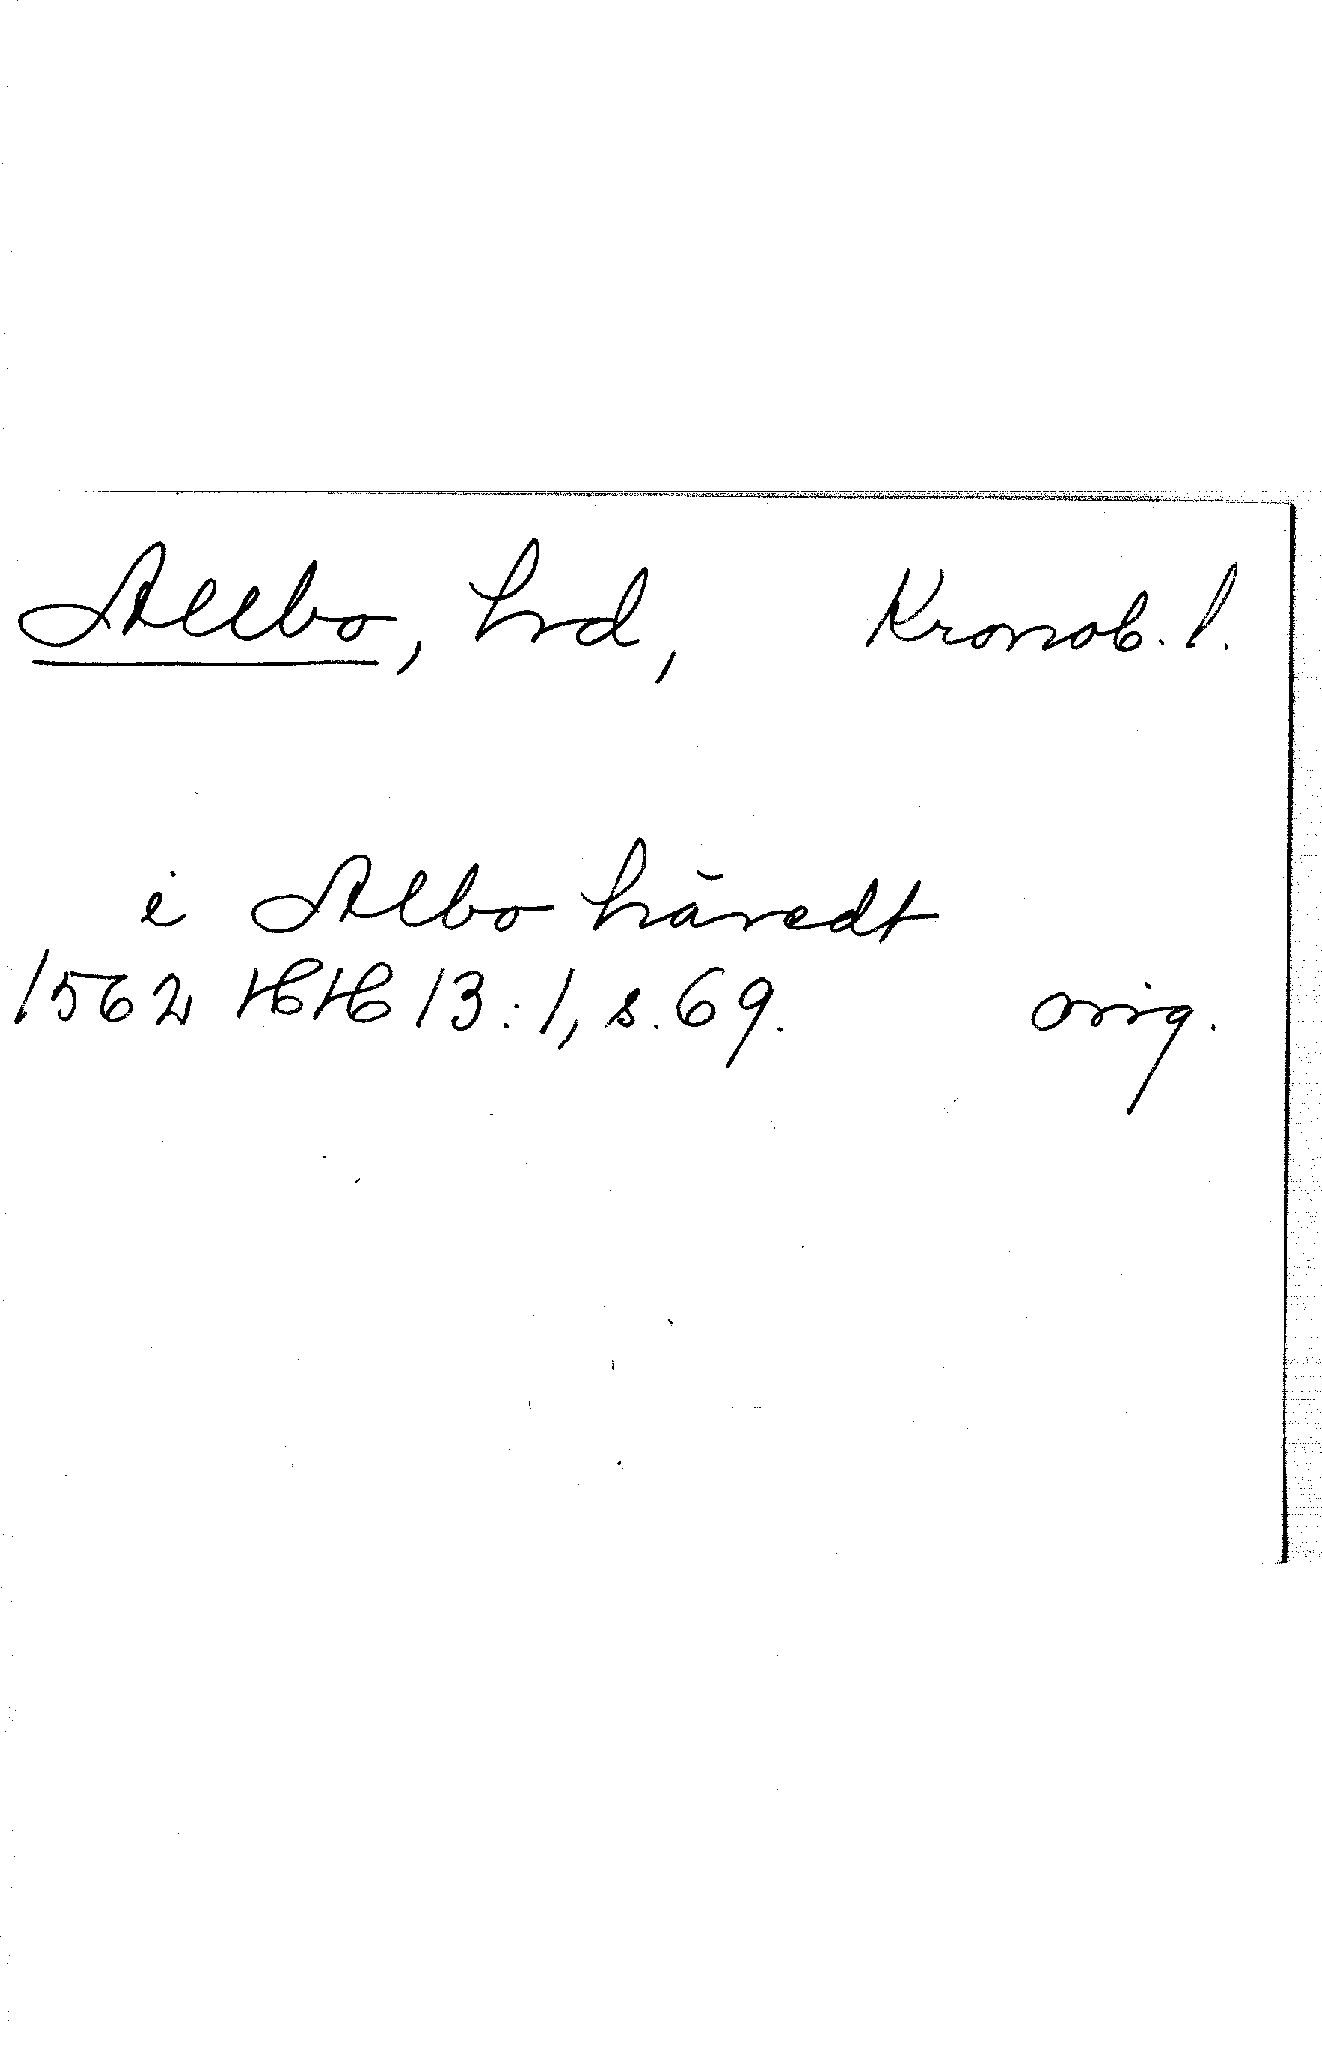 Allbo, hrd, Kronob. l.
i Albo häredt
1562 HH 13:1, s. 69. orig.